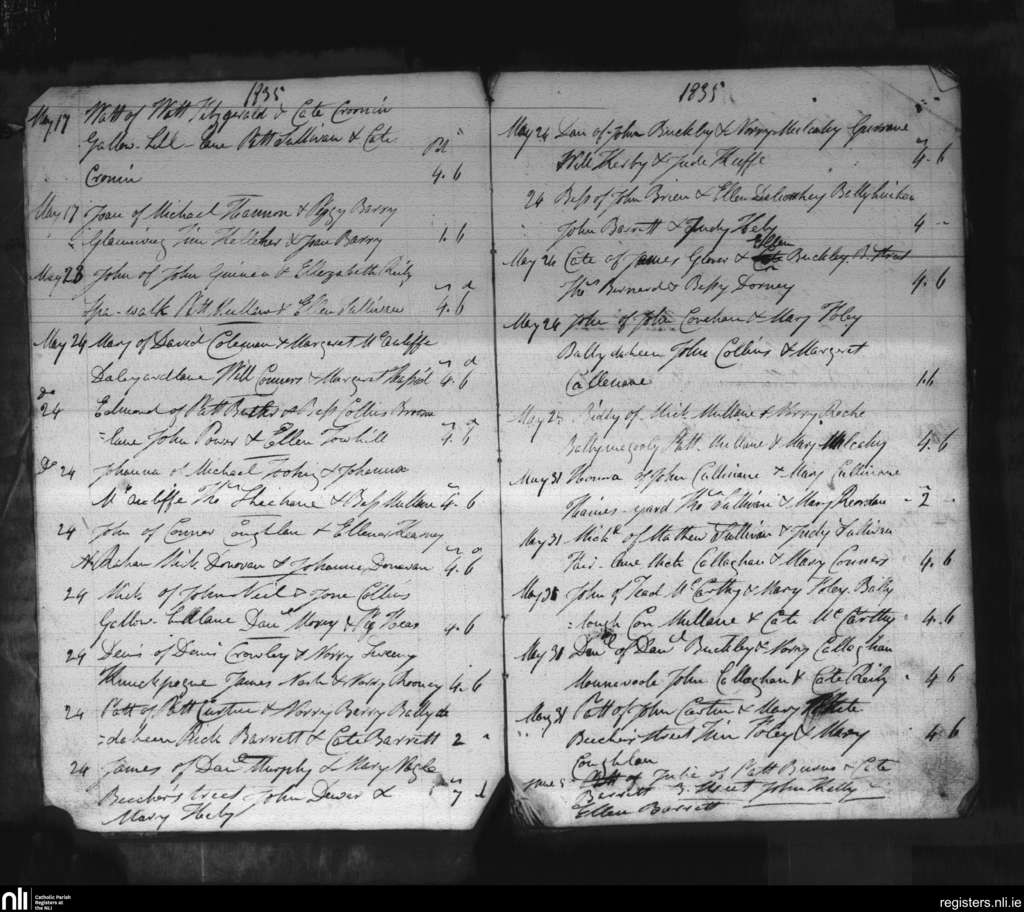 1835
May 17 Watt of Watt Fitzgerald & Cate Cronin
Gallow-hill-lane Patt Sullivan & Cate
Cronin 4.6
May 17 Joan of Michael Hannon & Peggy Barry
Tim Kelleher & Joan Barry 1.6
May 23 John of John Guinea & Ellezabeth Reily
Spa-walk Patt & Ellen Sullivan 4.6
May 24 Mary of David Coleman & Margaret McAuliffe
Daleyardlane Will Conners & Margaret 4.6
Do 24 Edmond of Patt & Bess Collins Broom
=lane John Power & Ellen Towhill 4.6
Do 24 Johanna of Michael & Johanna
McAuliffe Thos Sheehane & Bess Mullane 4.6
24 John of Conner Coughlan & Ellen Kearney
Mick Donovan & Johanna Donovan 4.6
24 Mick of John Neil & Jone Collins
Gallow-hillane Danl & Peg Heas 4.6
24 Denis of Denis Crowley & Norry Sweeny
James Nash & Norry 4.6
24 Patt of Patt Curtin & Norry Barry Bally de
=daheen Rick Barrett & Cate Barrett 2
24 James of Danl Murphy & Mary Nagle
Beecher's treet John Dwer & 7
Mary Heby
1835
May 24 Dan of John Buckley & Norry Mulcahy
Will Kerby & Jude Keeffe 4.6
24 Bess of John Brien & Ellen
John Barrett & Judy Heby 4 -
Ellen
May 24 Cate of James Glover & Buckley
Thos Burnard & Bessy Dorney 4.6
May 24 John of John & Mary Foley
Ballydaheen John Collins & Margaret
Callenane 1.6
May 25 Biddy of Mick Mullane & Norry Roche
Ballymagooly Patt Mullane & Mary Mulcahy 4.6
May 31 Honora of John Callinane & Mary Callinane
yard Thos Sullivan & Mary Reordan - 2 -
May 31 Michl of Mathew Sullivan & Judy Sullivan
Fair-lane Mick Callaghan & Mary Conners 4.6
May 31 John of Tead McCarthy & Mary Foley Bally
=lough Con Mullane & Cate McCarthy 4.6
May 31 Danl of Danl Buckley & Norry Callaghan
John Callaghan & Cate Reily 4 6
May 31 Patt of John Curtin & Mary White
Beecher street Tim Foley & Mary 4.6
Coughlan
June Julia of Patt Burns & Cate
Barrett B. Street John Kelly
Ellen Barrett
nli
Catholic Parish
Registers at
the NLI
registers.nli.ie